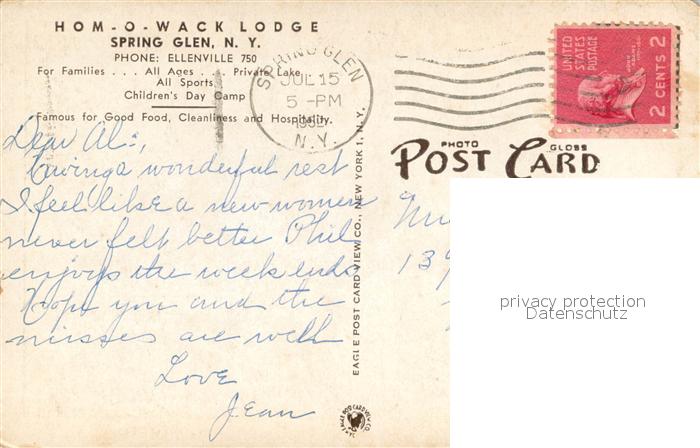 HOM-O-WACK LODGE
SPRING GLEN, N. Y.
PHONE: ELLENVILLE 750
For Families . . . All Ages . . . Private Lake
All Sports
Children's Day Camp
Famous for Good Food, Cleanliness and Hospitality.
SPRING GLEN
JUL 15
5 - PM
N.Y.
UNITED STATES POSTAGE
JOHN ADAMS
2 CENTS 2
PHOTO GLOSS
POST CARD
Dear Al:,
Having a wonderful rest
I feel like a new women
never felt better Phil
enjoys the week ends
Hope you and the
misses are well
Love
Jean
EAGLE POST CARD VIEW CO., NEW YORK 1, N. Y.
EAGLE POST CARD VIEW CO.
139
privacy protection
Datenschutz